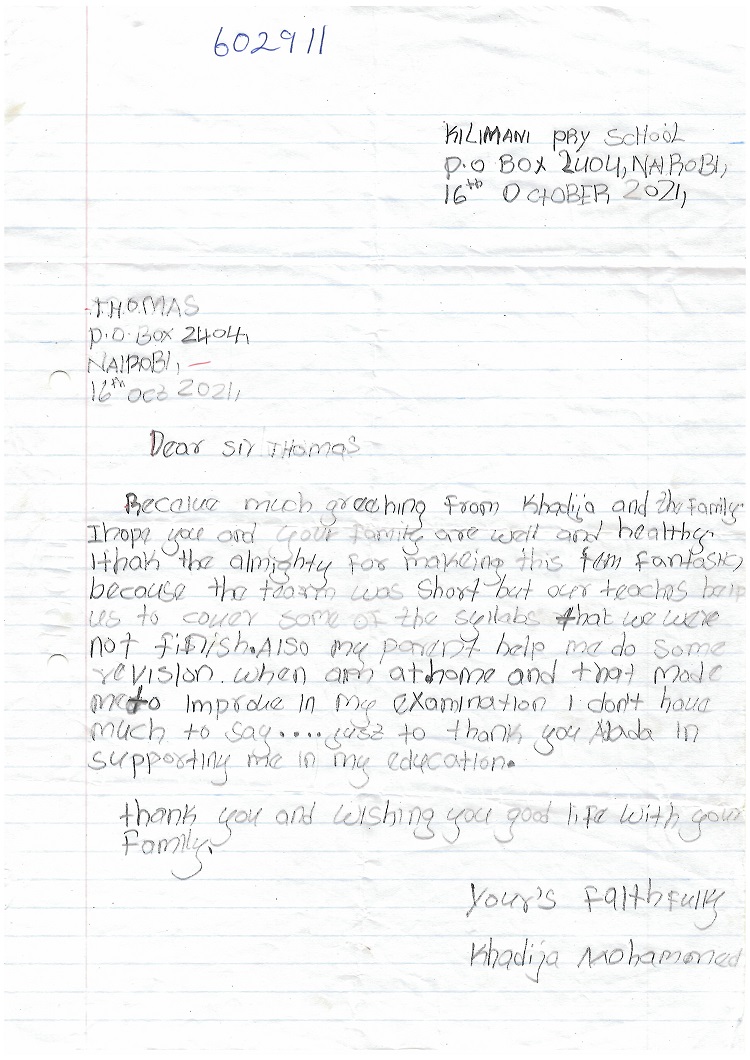 602911
KILIMANI PRY SCHOOL
P.O BOX 2404, NAIROBI,
16th OCTOBER 2021,
THOMAS
P.O. BOX 2404,
NAIROBI, –
16th Oct 2021,
Dear Sir THomas
Recaive much greeching from Khadija and the family.
I hope you and your family are well and healthy.
Ithak the almighty for makeing this tem fantastic,
because the tearm was short but our teachs help
us to cover some of the syllabs that we were
not finish. Also my parent help me do some
revision. when am athome and that made
me to improve in my examination I don't have
much to say.... just to thank you Alada in
supporting me in my education.
thank you and wishing you good life with your
family.
Your's faithfully
Khadija Mohammed